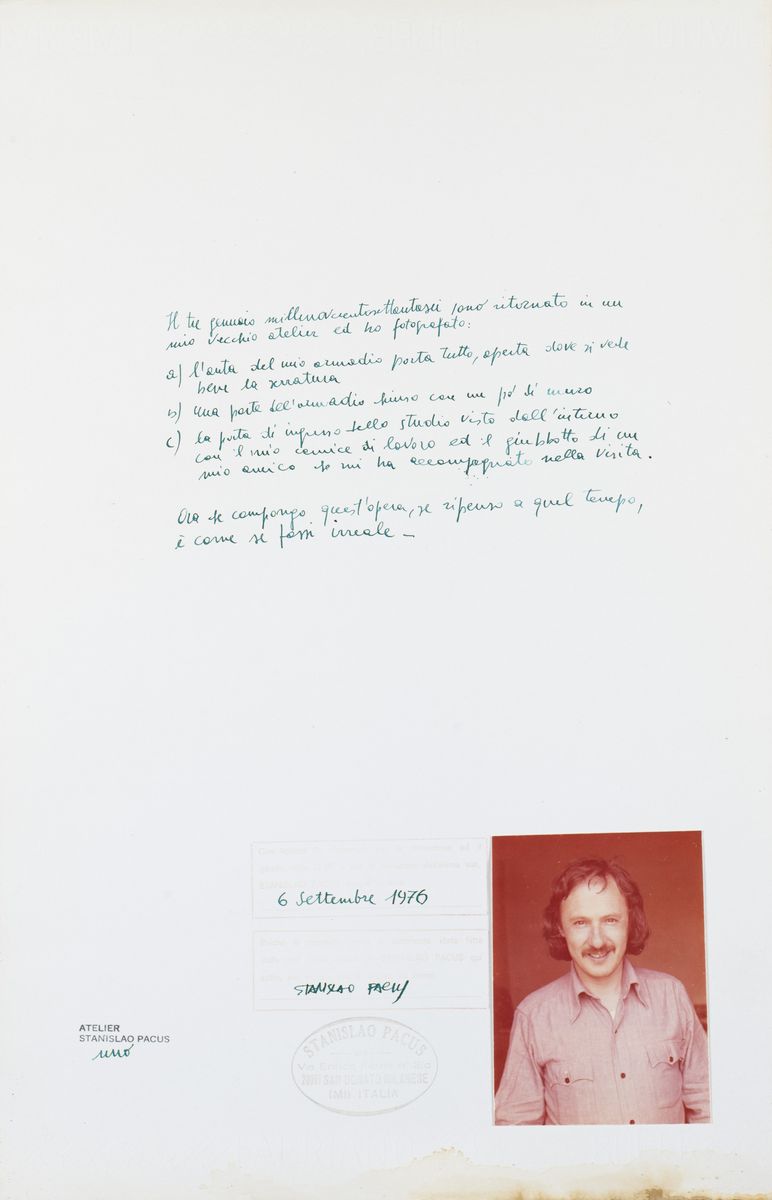 Il tre gennaio millenovecentosettantasei sono ritornato in un
mio vecchio atelier ed ho fotografato:
a) l'anta del mio armadio porta tutto, aperta dove si vede
bene la serratura
b) una parte dell'armadio chiuso con un pó di muro
c) la porta di ingresso dello studio visto dall'interno
con il mio camice di lavoro ed il giubbotto di un
mio amico che mi ha accompagnato nella visita.
Ora che compongo quest'opera, se ripenso a quel tempo,
è come se fossi irreale –
6 Settembre 1976
STANISLAO PACUS
STANISLAO PACUS
Via Enrico
20097 SAN DONATO MILANESE
(MI) ITALIA
ATELIER
STANISLAO PACUS
uno